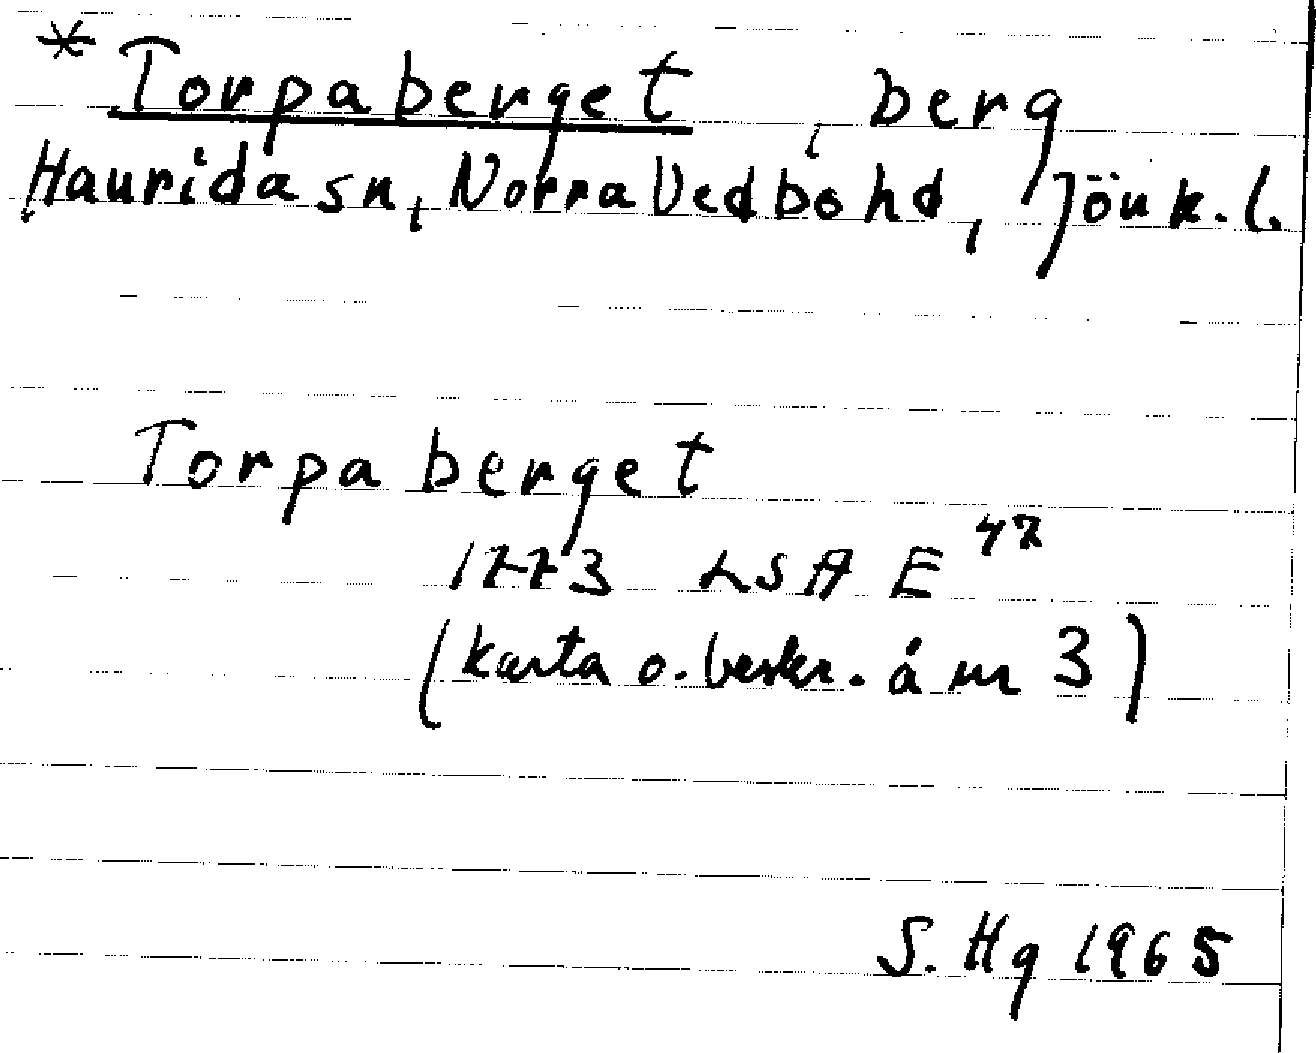 * Torpaberget, berg
Haurida sn, Norra Vedbo hd, Jönk. l.
Torpaberget
1773 LSA E 47
(karta o. beskr. å nr 3)
S. Hg 1965